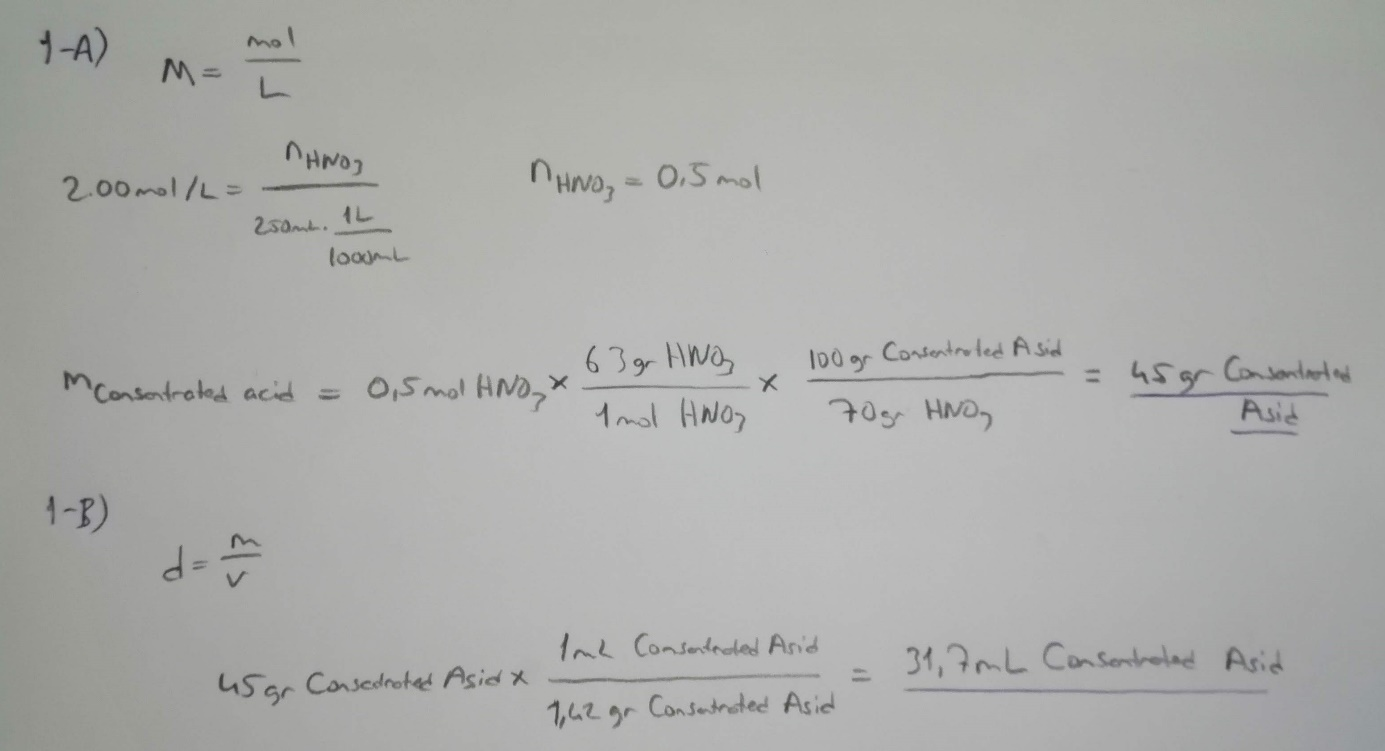 1-A) M = mol / L
2.00 mol/L = nHNO3 / 250mL. 1L / 1000mL nHNO3 = 0,5 mol
mConsentrated acid = 0,5 mol HNO3 x 63 gr HNO3 / 1 mol HNO3 x 100 gr Consentrated Asid / 70 gr HNO3 = 45 gr Consentrated Asid
1-B)
d = m / v
45 gr Consedrated Asid x 1 mL Consentrated Asid / 1,42 gr Consentrated Asid = 31,7 mL Consentrated Asid